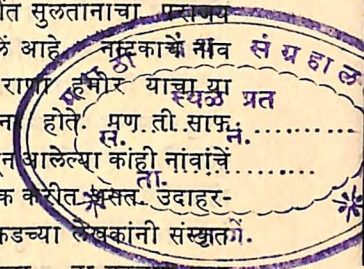 ांत सुलतानाचा पराजय
लें आहे नाटकाचें नांव
राणा हमीर याचा या
ना होते. पण ती साफ
न आलेल्या कांही नावांचें
क करीत असत. उदाहर-
कडच्या लेखकांनी संस्कृत
संग्रहाल
स्थळ प्रत
सं. नं.
ता.